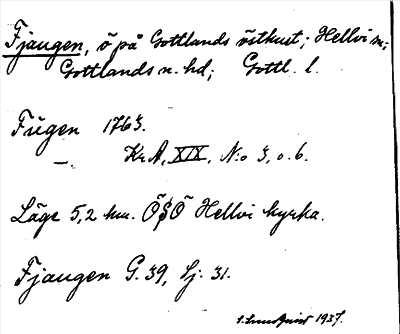 Fjaugen, ö på Gottlands östkust; Hellvi sn;
Gottlands n. hd; Gottl. l.
Fugen 1763.
—. KrA, XIX, N:o 3, o. 6.
Läge 5,2 km. ÖSÖ Hellvi kyrka.
Fjaugen G. 39, Sj. 31.
I. Lundquist 1937.